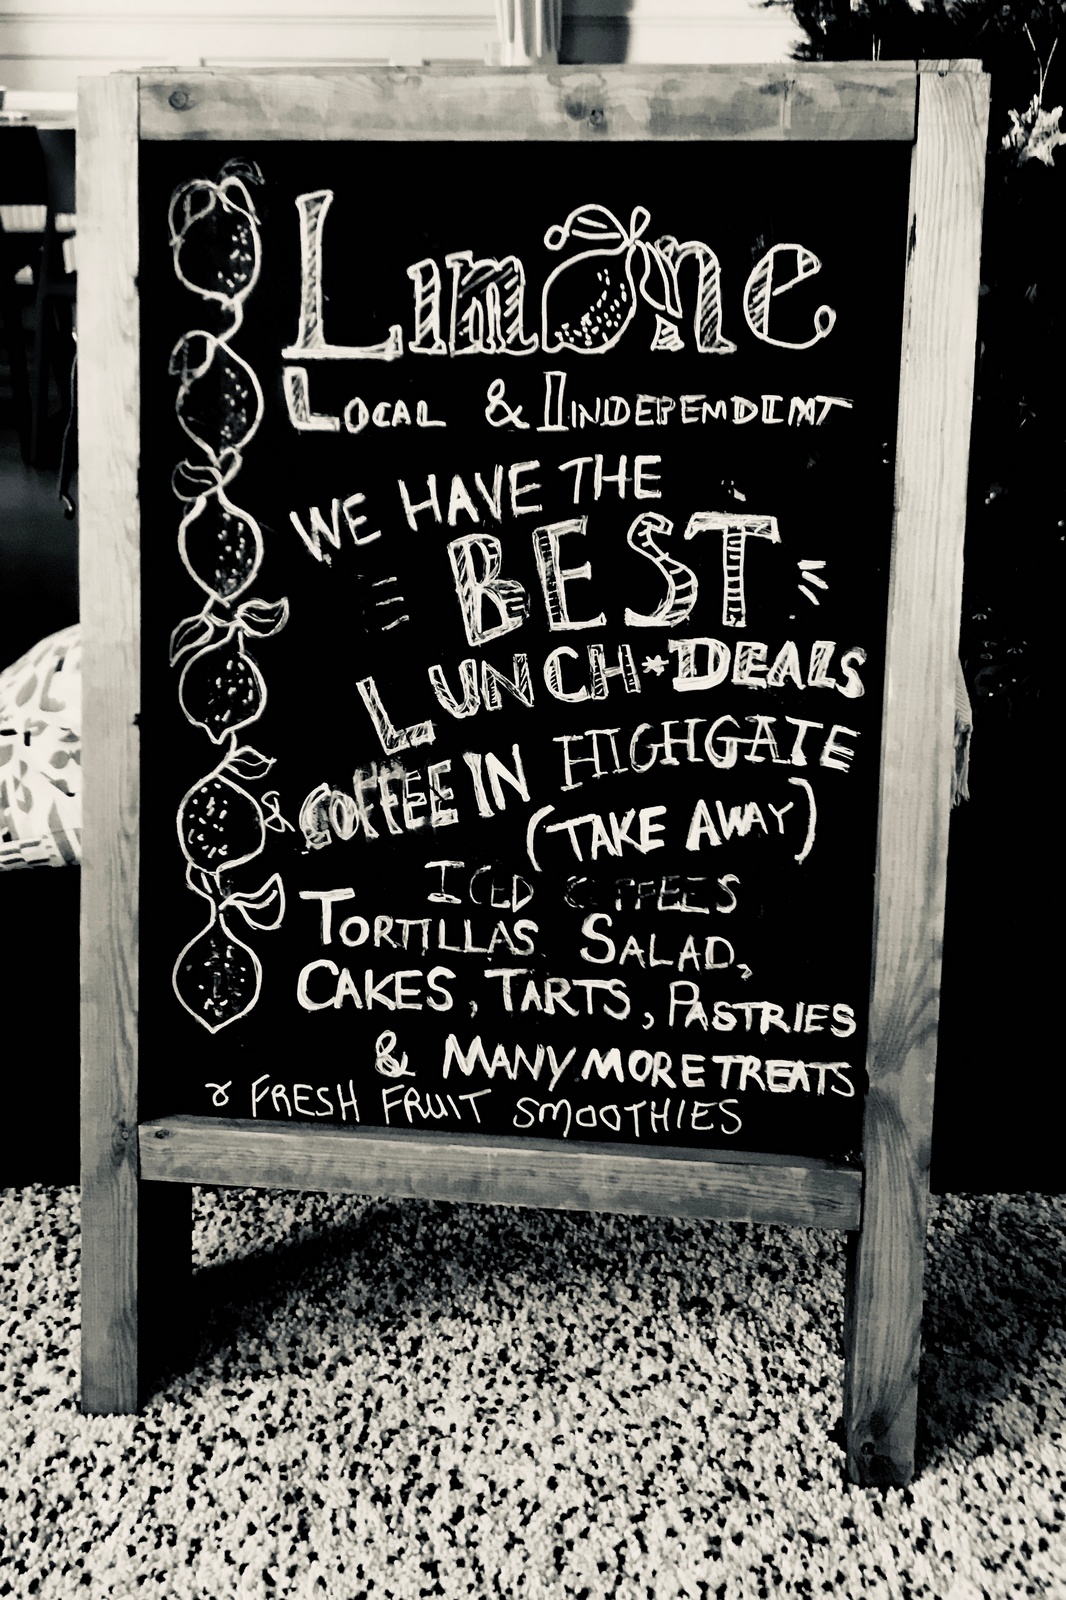 Limone
LOCAL & INDEPENDENT
WE HAVE THE
BEST
LUNCH * DEALS
& COFFEE IN HIGHGATE
(TAKE AWAY)
ICED COFFEES
TORTILLAS SALAD,
CAKES, TARTS, PASTRIES
& MANY MORE TREATS
& FRESH FRUIT SMOOTHIES